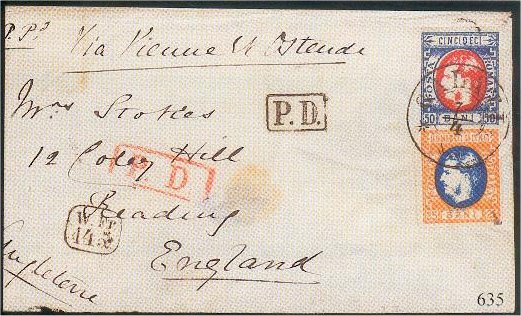 P.P.
Via Vienne & Ostende
CINCI DECI
POSTA
50 BANI 50
7
4
Mrs Stokes
P.D.
12 Coley Hill
P. D
Reading
W. Fr
14
BANI
England
Angleterre
635